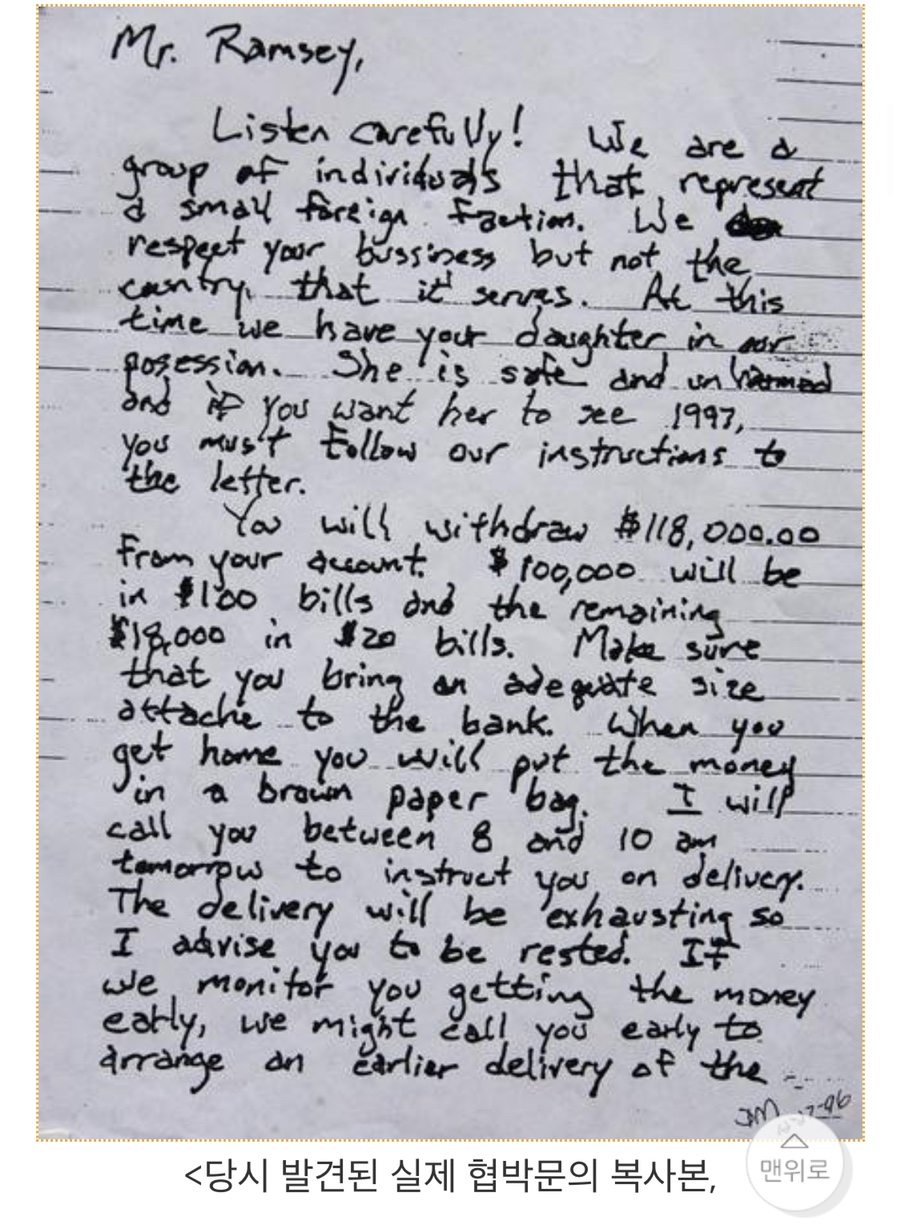 Mr. Ramsey,
Listen carefully! We are a
group of individuals that represent
a small foreign faction. We
respect your bussiness but not the
country that it serves. At this
time we have your daughter in our
posession. She is safe and unharmed
and if you want her to see 1997,
you must follow our instructions to
the letter.
You will withdraw $118,000.00
from your account. $100,000 will be
in $100 bills and the remaining
$18,000 in $20 bills. Make sure
that you bring an adequate size
attache to the bank. When you
get home you will put the money
in a brown paper bag. I will
call you between 8 and 10 am
tomorrow to instruct you on delivery.
The delivery will be exhausting so
I advise you to be rested. If
we monitor you getting the money
early, we might call you early to
arrange an earlier delivery of the
<당시 발견된 실제 협박문의 복사본,
맨위로